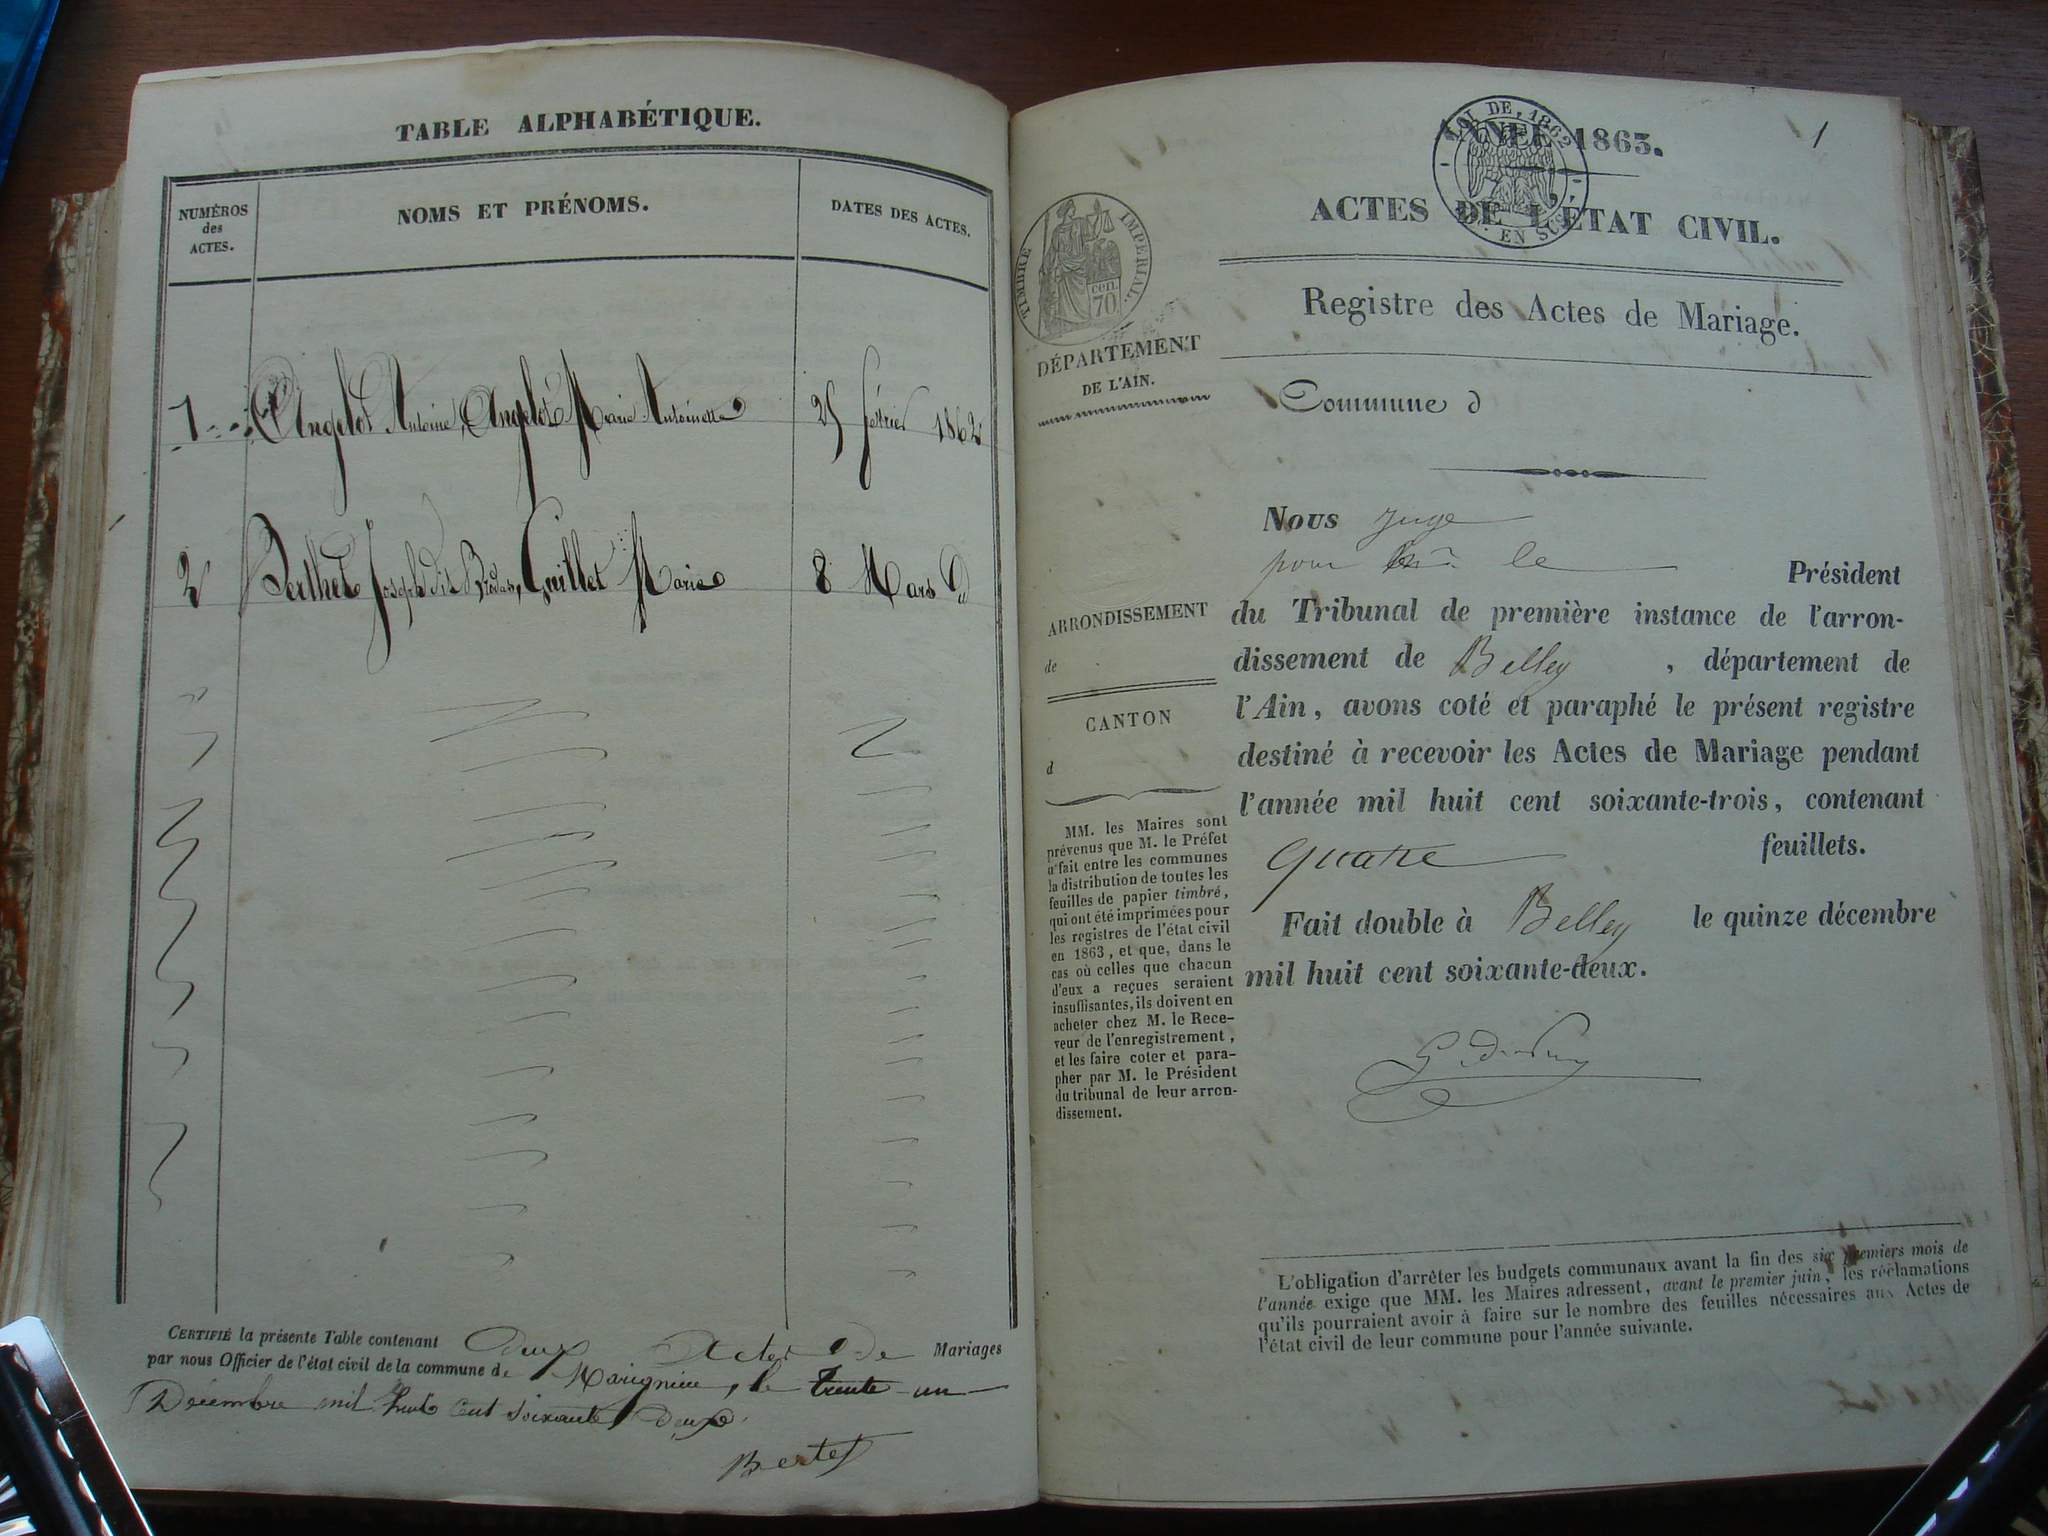 TABLE ALPHABÉTIQUE.
NUMÉROS
des
ACTES.
NOMS ET PRÉNOMS.
DATES DES ACTES.
1 Angelot Antoine, Angelot Marie Antoinette 25 février 1862
2 Berthet Joseph dit, Guillet Marie 8 Mars
CERTIFIÉ la présente Table contenant deux Actes de Mariages
par nous Officier de l'état civil de la commune de Marignieu, le trente-un
Décembre mil huit cent soixante deux.
Bertet
1
LOI DE 1862
EN SUS
ANNÉE 1863.
ACTES DE L'ÉTAT CIVIL.
Registre des Actes de Mariage.
TIMBRE IMPÉRIAL.
70 cen.
DÉPARTEMENT
DE L'AIN.
Commune d
ARRONDISSEMENT
de
CANTON
d
MM. les Maires sont
prévenus que M. le Préfet
a fait entre les communes
la distribution de toutes les
feuilles de papier timbré,
qui ont été imprimées pour
les registres de l'état civil
en 1863, et que, dans le
cas où celles que chacun
d'eux a reçues seraient
insuffisantes, ils doivent en
acheter chez M. le Rece-
veur de l'enregistrement,
et les faire coter et para-
pher par M. le Président
du tribunal de leur arron-
dissement.
Nous Juge
pour le Président
du Tribunal de première instance de l'arron-
dissement de Belley, département de
l'Ain, avons coté et paraphé le présent registre
destiné à recevoir les Actes de Mariage pendant
l'année mil huit cent soixante-trois, contenant
quatre feuillets.
Fait double à Belley le quinze décembre
mil huit cent soixante-deux.
L'obligation d'arrêter les budgets communaux avant la fin des six premiers mois de
l'année exige que MM. les Maires adressent, avant le premier juin, les réclamations
qu'ils pourraient avoir à faire sur le nombre des feuilles nécessaires aux Actes de
l'état civil de leur commune pour l'année suivante.